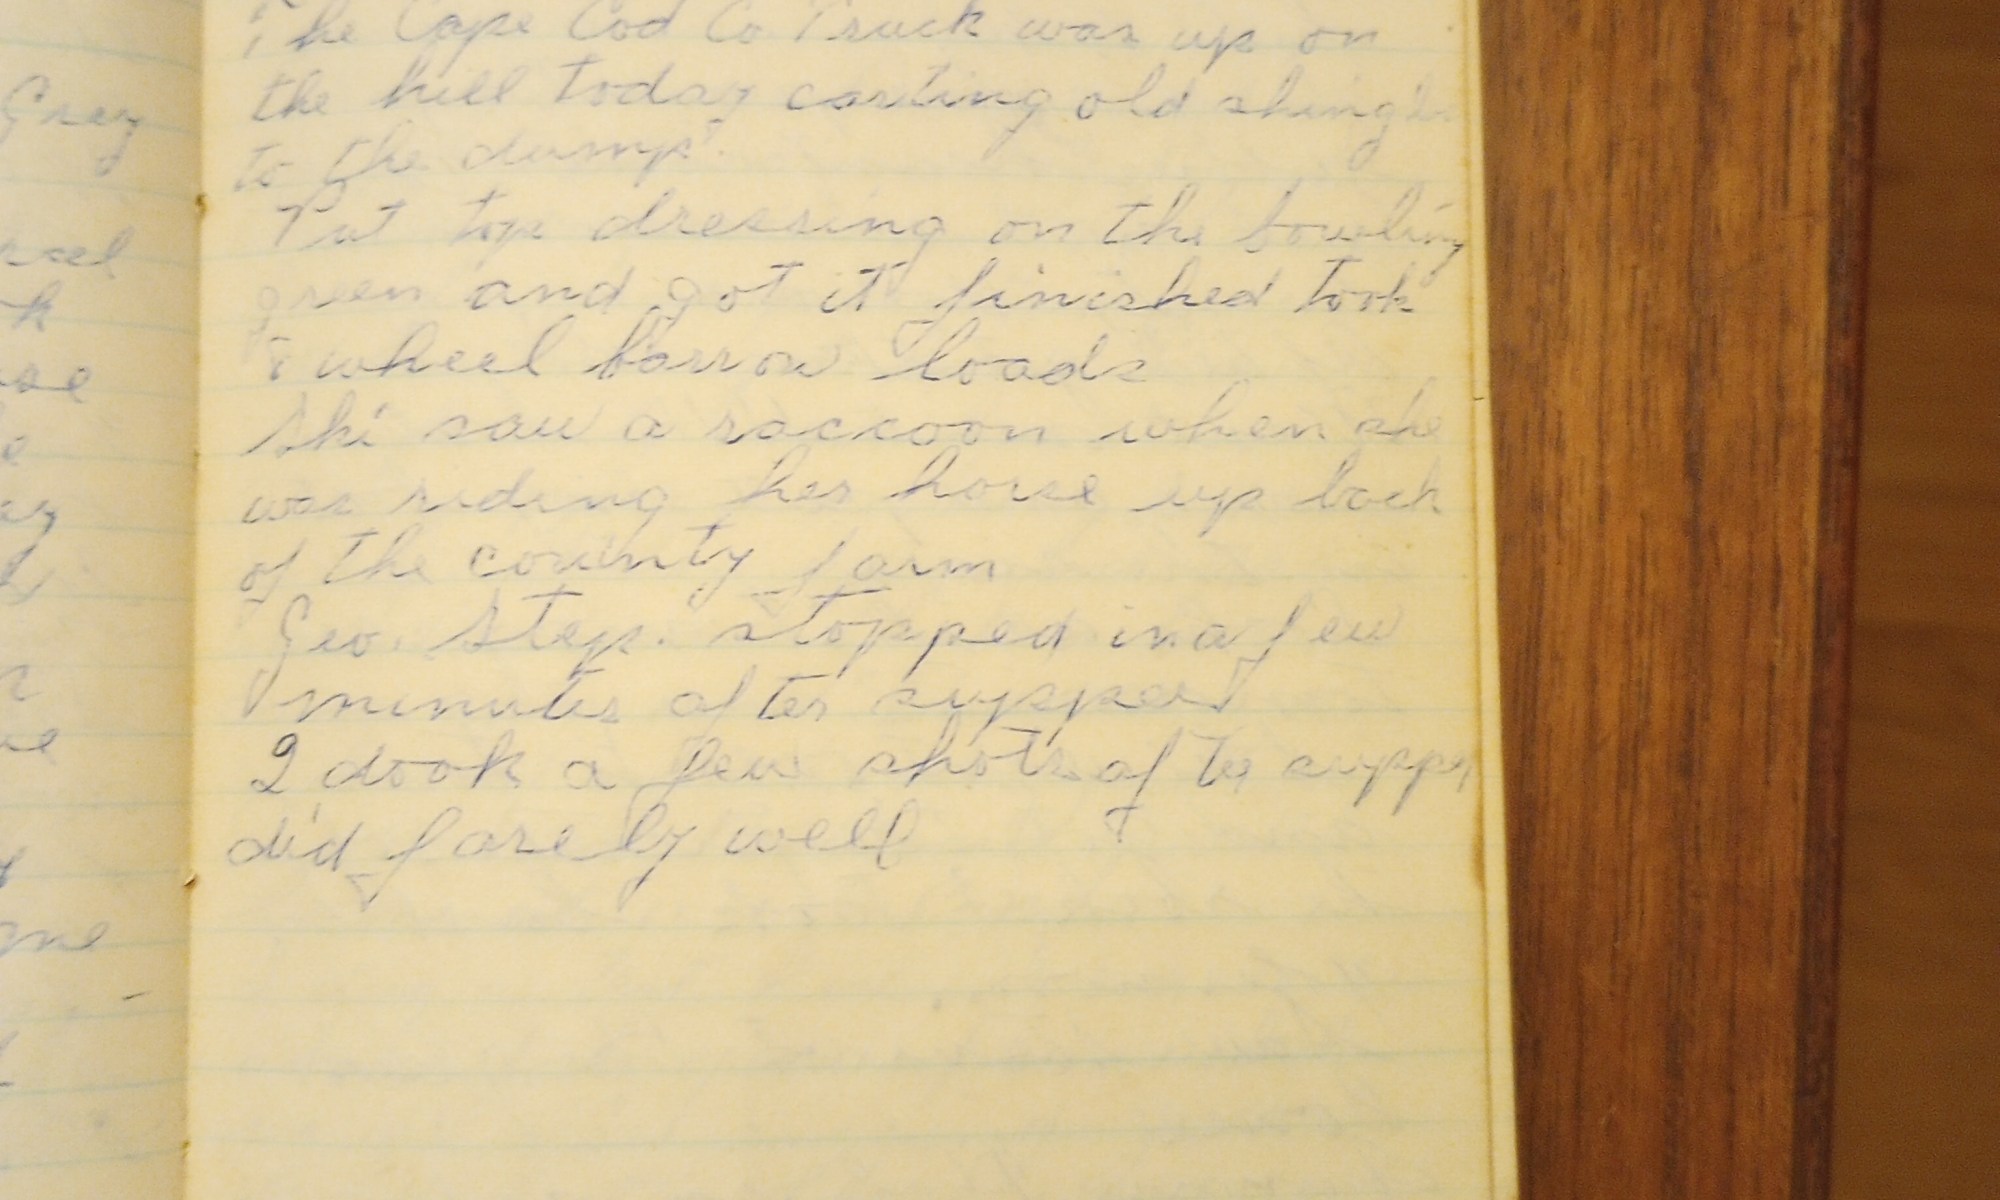 Grey
The Cape Cod Co Truck was up on
the hill today carting old shingles
to the dump.
Put top dressing on the bowling
green and got it finished took
8 wheel barrow loads
Ski saw a raccoon when she
was riding her horse up back
of the county farm
Geo. Step. stopped in a few
minutes after supper
I took a few shots after supper
did farely well